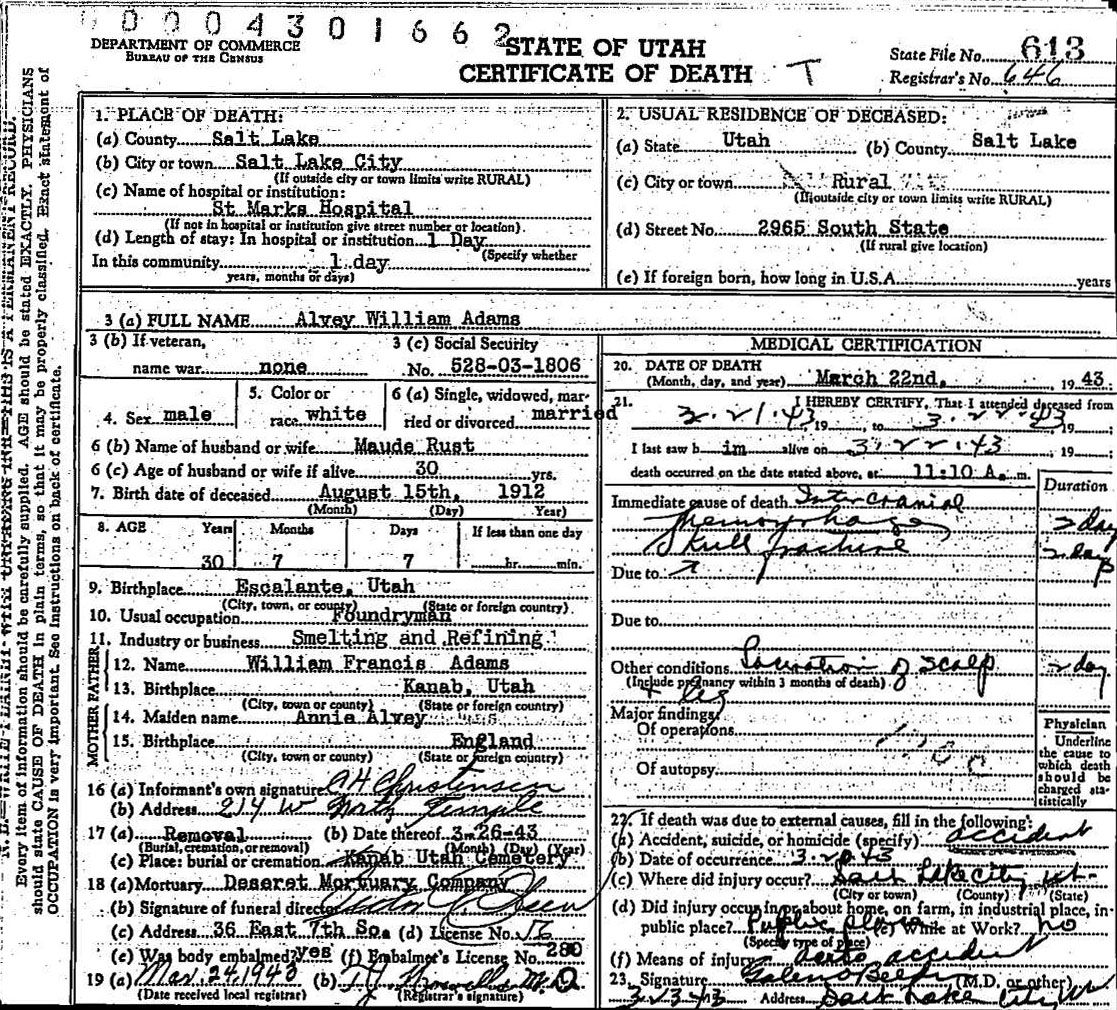 0 0 0 0 4 3 0 1 6 6 2
DEPARTMENT OF COMMERCE
BUREAU OF THE CENSUS
STATE OF UTAH
CERTIFICATE OF DEATH T
State File No. 613
Registrar's No. 646
Every item of information should be carefully supplied. AGE should be stated EXACTLY. PHYSICIANS
should state CAUSE OF DEATH in plain terms, so that it may be properly classified. Exact statement of
OCCUPATION is very important. See instructions on back of certificate.
1. PLACE OF DEATH:
(a) County Salt Lake
(b) City or town Salt Lake City
(If outside city or town limits write RURAL)
(c) Name of hospital or institution:
St Marks Hospital
(If not in hospital or institution give street number or location)
(d) Length of stay: In hospital or institution 1 Day
(Specify whether
In this community 1 day
years, months or days)
2. USUAL RESIDENCE OF DECEASED:
(a) State Utah (b) County Salt Lake
(c) City or town Rural
(If outside city or town limits write RURAL)
(d) Street No. 2965 South State
(If rural give location)
(e) If foreign born, how long in U.S.A. years
3 (a) FULL NAME Alvey William Adams
3 (b) If veteran,
name war none
3 (c) Social Security
No. 528-03-1806
4. Sex male
5. Color or
race white
6 (a) Single, widowed, mar-
ried or divorced married
6 (b) Name of husband or wife Maude Rust
6 (c) Age of husband or wife if alive 30 yrs.
7. Birth date of deceased August 15th, 1912
(Month) (Day) Year)
8. AGE Years Months Days If less than one day
30 7 7 hr. min.
9. Birthplace Escalante, Utah
(City, town, or county) (State or foreign country)
10. Usual occupation Foundryman
11. Industry or business Smelting and Refining
FATHER
12. Name William Francis Adams
13. Birthplace Kanab, Utah
(City, town or county) (State or foreign country)
MOTHER
14. Maiden name Annie Alvey
15. Birthplace England
(City, town or county) (State or foreign country)
16 (a) Informant's own signature A H Christensen
(b) Address 214 W North Temple
17 (a) Removal (b) Date thereof 3-26-43
(Burial, cremation, or removal) (Month) (Day) (Year)
(c) Place: burial or cremation Kanab Utah Cemetery
18 (a) Mortuary Deseret Mortuary Company
(b) Signature of funeral director
(c) Address 36 East 7th So. (d) License No. 56
(e) Was body embalmed? yes (f) Embalmer's License No. 280
19 (a) Mar. 24, 1943 (b) M.D.
(Date received local registrar) (Registrar's signature)
MEDICAL CERTIFICATION
20. DATE OF DEATH
(Month, day, and year) March 22nd, , 1943.
21. I HEREBY CERTIFY, That I attended deceased from
3.21.43, 19 , to 3.22.43, 19 ;
I last saw h im alive on 3.22.43, 19 ;
death occurred on the date stated above, at 11:10 A. m.
Duration
Immediate cause of death Intercranial
Hemorrhage 2 day
Skull fracture 2 day
Due to
Due to
Other conditions Laceration of scalp 2 day
(Include pregnancy within 3 months of death)
+ leg
Major findings:
Of operations
Of autopsy
Physician
Underline
the cause to
which death
should be
charged sta-
tistically
22. If death was due to external causes, fill in the following:
(a) Accident, suicide, or homicide (specify) accident
(b) Date of occurrence 3.20.43
(c) Where did injury occur? Salt Lake City Ut.
(City or town) (County) (State)
(d) Did injury occur in or about home, on farm, in industrial place, in
public place? Public place (e) While at Work? no
(Specify type of place)
(f) Means of injury auto accident
23. Signature Galen O Belden (M.D. or other)
3.23.43 Address Salt Lake City Ut